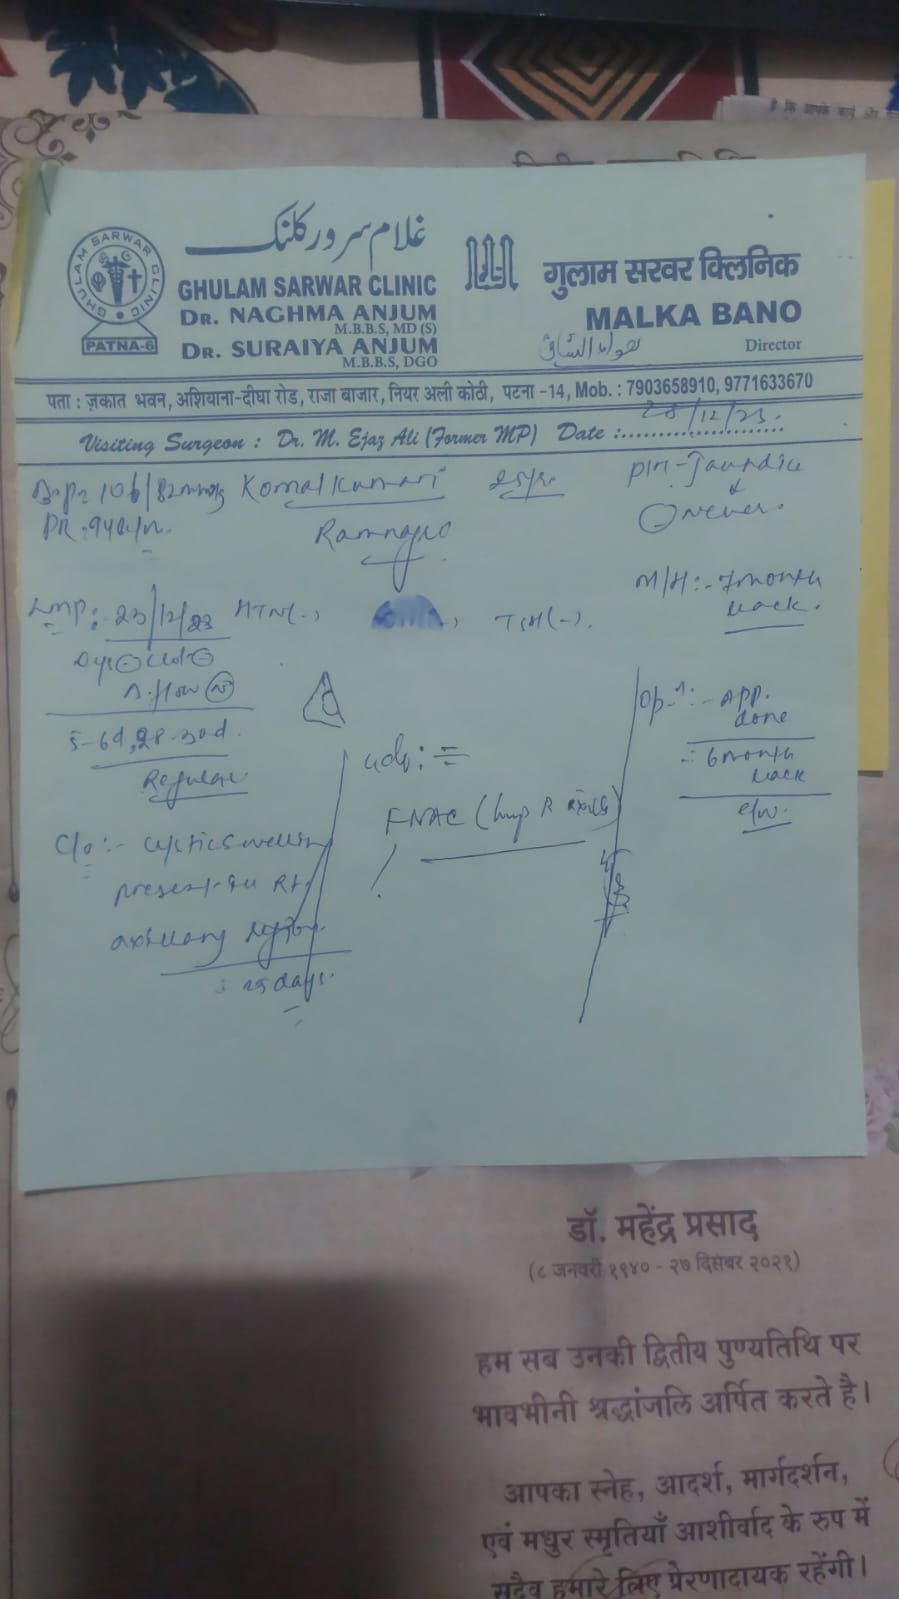 है कि आपके कार्य और
غلام سرور کلنک
GHULAM SARWAR CLINIC
PATNA-6
GHULAM SARWAR CLINIC
DR. NAGHMA ANJUM
M.B.B.S, MD (S)
DR. SURAIYA ANJUM
M.B.B.S, DGO
गुलाम सरवर क्लिनिक
MALKA BANO
Director
पता : ज़कात भवन, अशियाना-दीघा रोड, राजा बाजार, नियर अली कोठी, पटना -14, Mob. : 7903658910, 9771633670
Visiting Surgeon : Dr. M. Ejaz Ali (Former MP) Date :.. 28/12/23.
B.P= 106/82mmHg Komal Kumari 25yr.
P/H - Jaundice
PR :
Ramnagro
M/H:- 7 month
back.
LMP:- 23/12/23 HTN(-)
n. flow (N)
5-6d, 28-30d.
Regular
Op-n:- App.
done
6 month
back
adv:=
FNAC (lump R axilla)
C/o:- cystic swelling
present in Rt.
axillary region.
: 25 days.
डॉ. महेंद्र प्रसाद
(८ जनवरी १९४० - २७ दिसंबर २०२१)
हम सब उनकी द्वितीय पुण्यतिथि पर
भावभीनी श्रद्धांजलि अर्पित करते है।
आपका स्नेह, आदर्श, मार्गदर्शन,
एवं मधुर स्मृतियाँ आशीर्वाद के रुप में
सदैव हमारे लिए प्रेरणादायक रहेंगी।